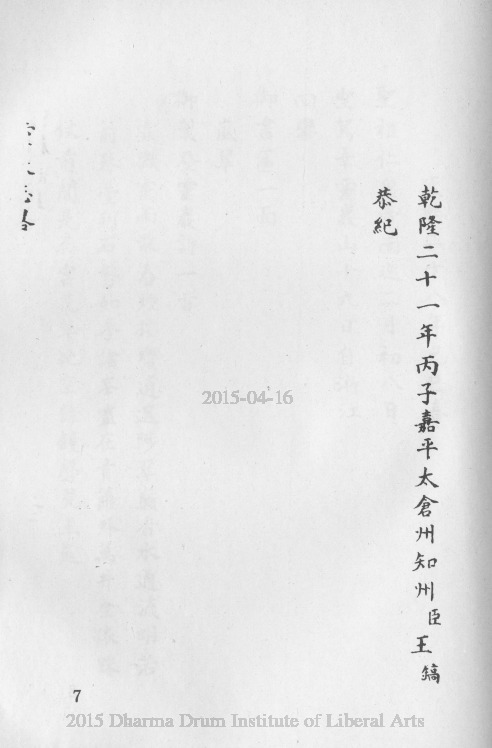 乾隆二十一年丙子嘉平太倉州知州臣王鎬
恭紀
2015-04-16
7
2015 Dharma Drum Institute of Liberal Arts